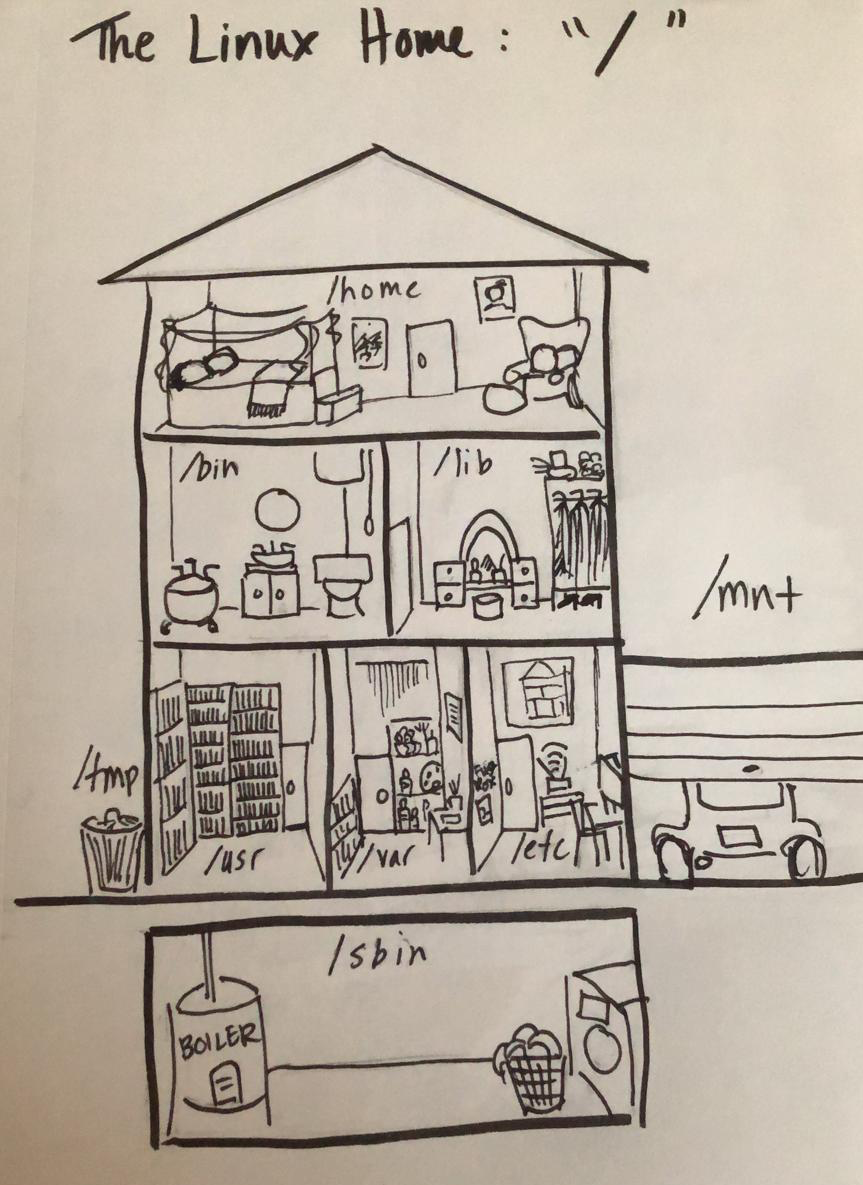 The Linux Home: "/"
/home
/bin
/lib
/mnt
/tmp
/usr
/var
/etc
/sbin
BOILER